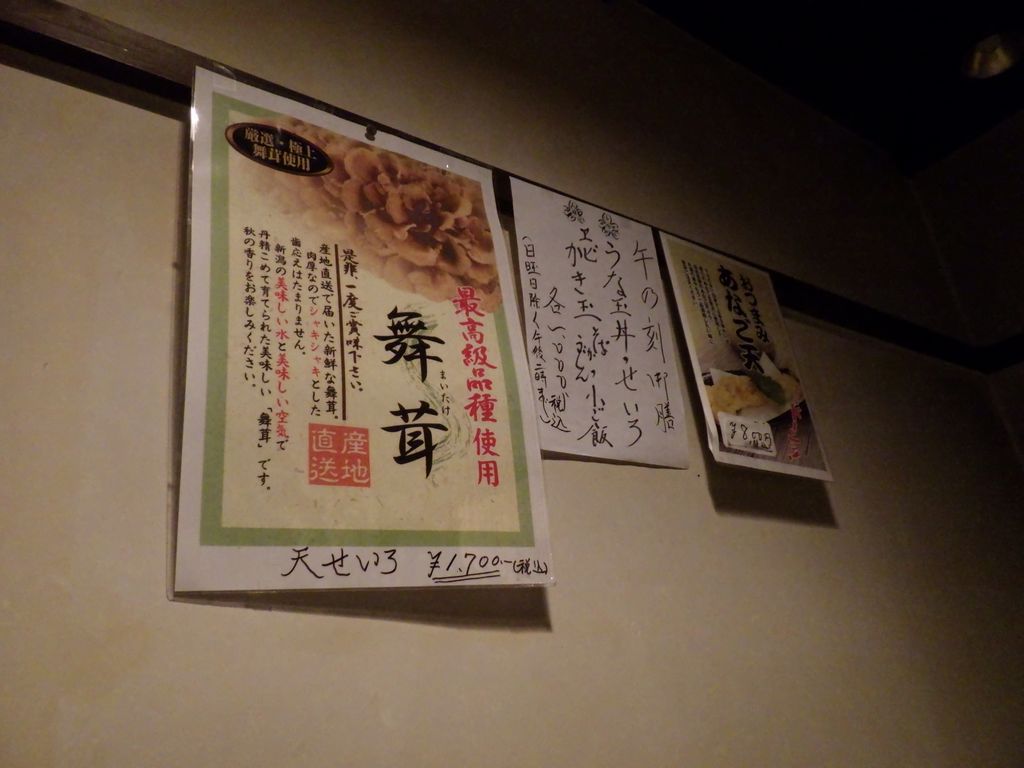 厳選・極上
舞茸使用
最高級品種使用
舞茸
まいたけ
産地
直送
是非、一度ご賞味下さい。
産地直送で届いた新鮮な舞茸。
肉厚なのでシャキシャキとした
歯応えはたまりません。
新潟の美味しい水と美味しい空気で
丹精こめて育てられた美味しい「舞茸」です。
秋の香りをお楽しみください。
天せいろ ¥1,700.-(税込)
午の刻御膳
うな玉丼・せいろ
かき玉
小ご飯
各一、〇〇〇税込
(日曜日除く午後二時まで)
おつまみ
あなご天